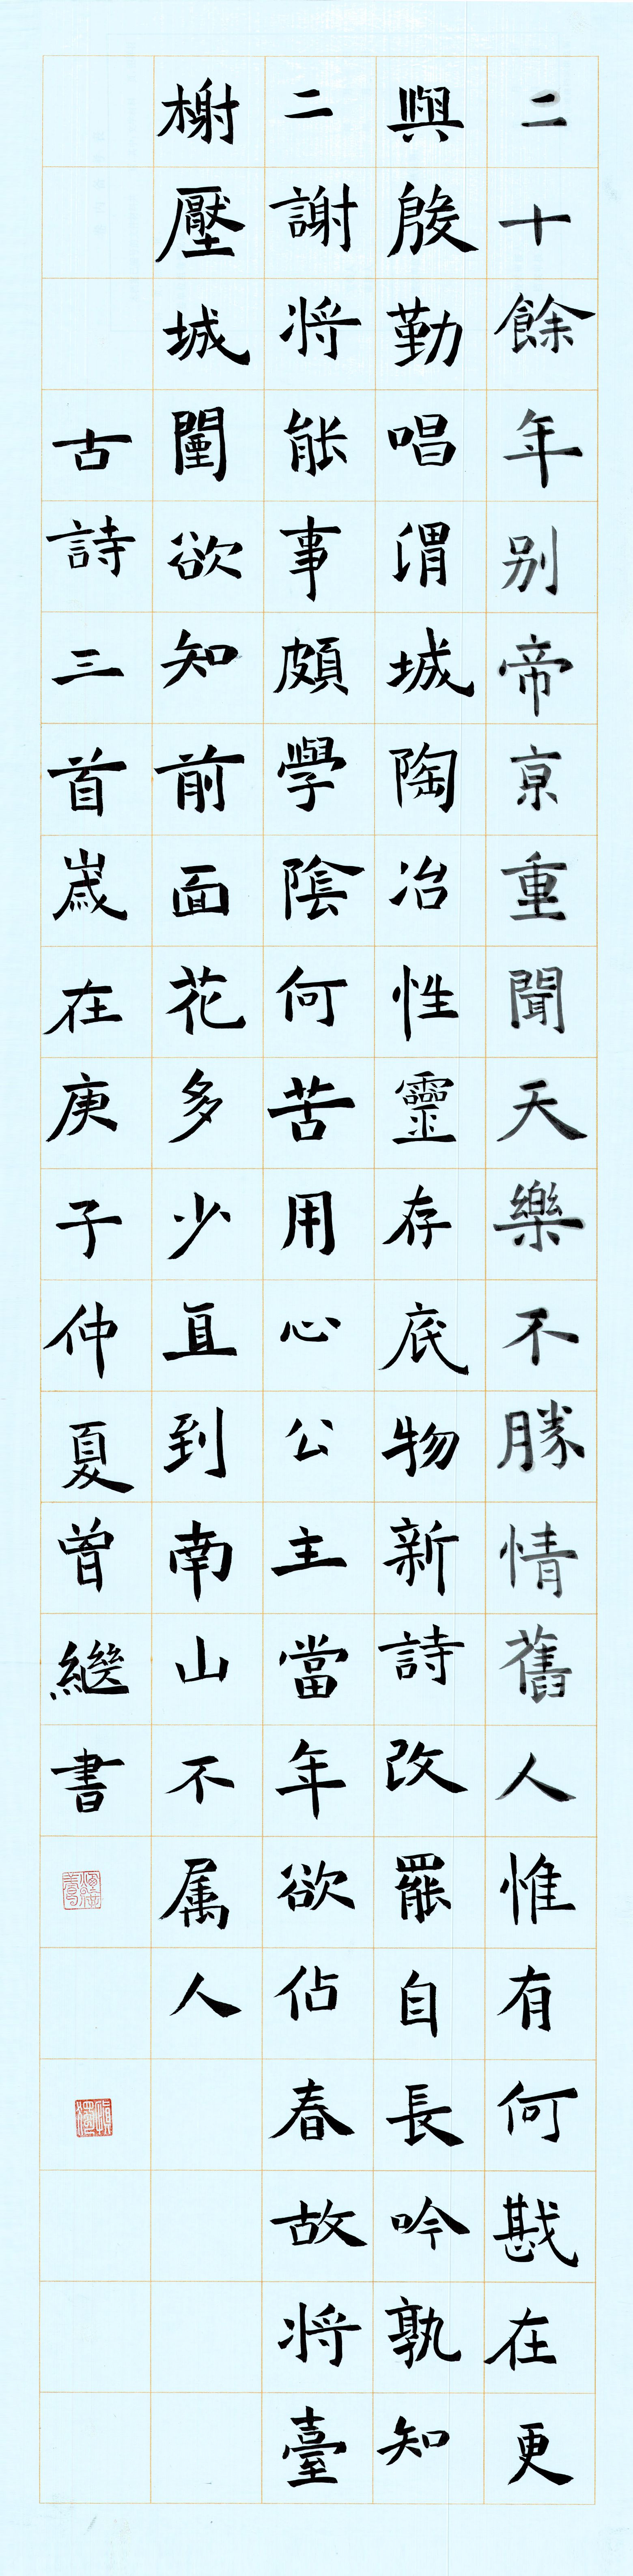 二十餘年别帝京重聞天樂不勝情舊人惟有何戡在更
與殷勤唱渭城陶冶性靈存底物新詩改罷自長吟孰知
二謝將能事頗學陰何苦用心公主當年欲佔春故將臺
榭壓城闉欲知前面花多少直到南山不属人
古詩三首歲在庚子仲夏曾繼書